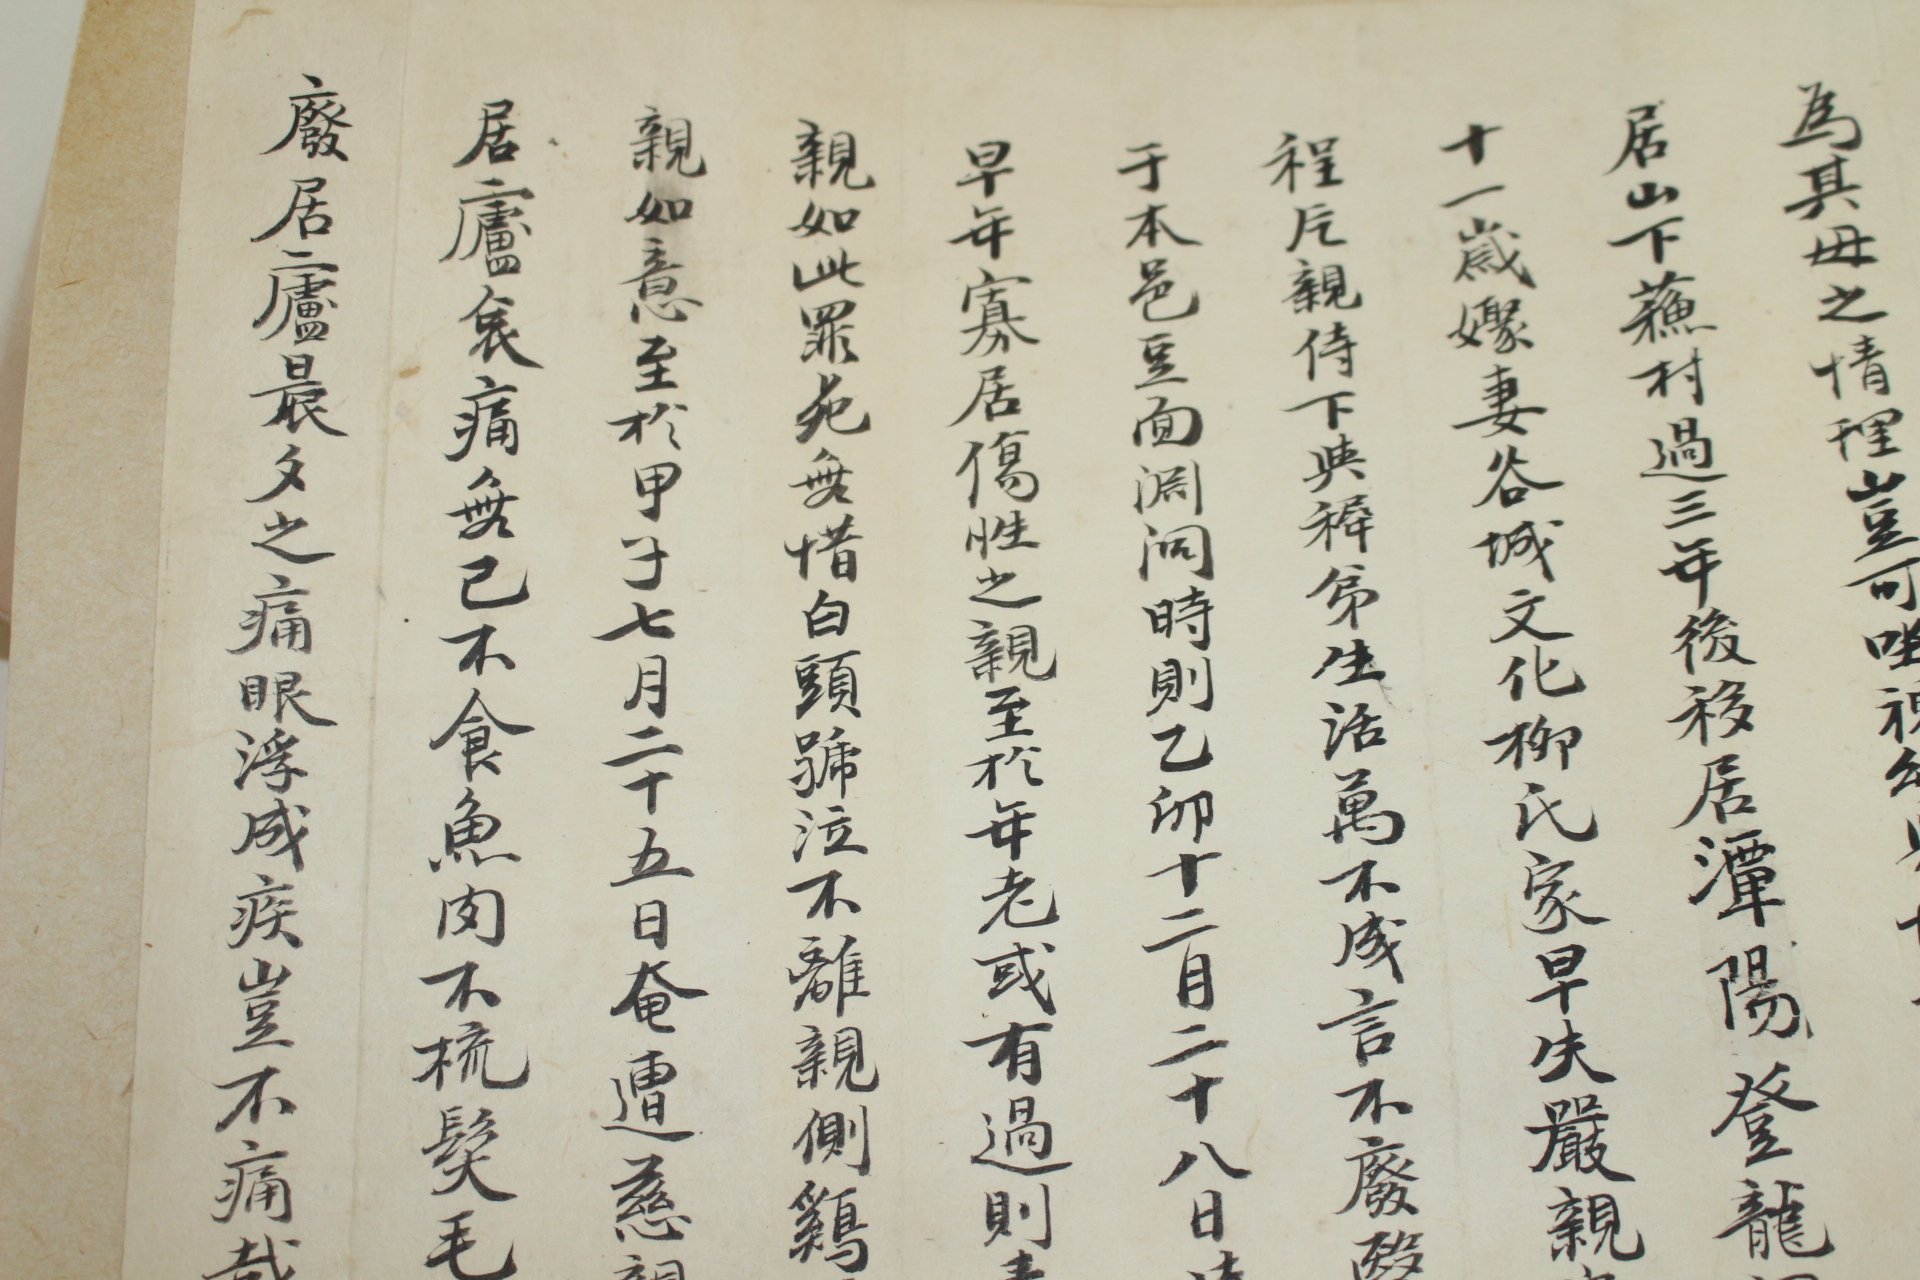 為其母之情理豈可
居山下蘓村過三年後移居潭陽登龍
十一歲嫁妻谷城文化柳氏家早失嚴親
程片親侍下與稺弟生活萬不成言不廢
于本邑豆面淵洞時則乙卯十二月二十八日
早年寡居傷性之親至於年老或有過則
親如此罪死無惜白頭號泣不離親側鷄
親如意至於甲子七月二十五日奄遭慈親
居廬哀痛無已不食魚肉不梳髮毛
廢居廬晨夕之痛眼浮成疾豈不痛哉